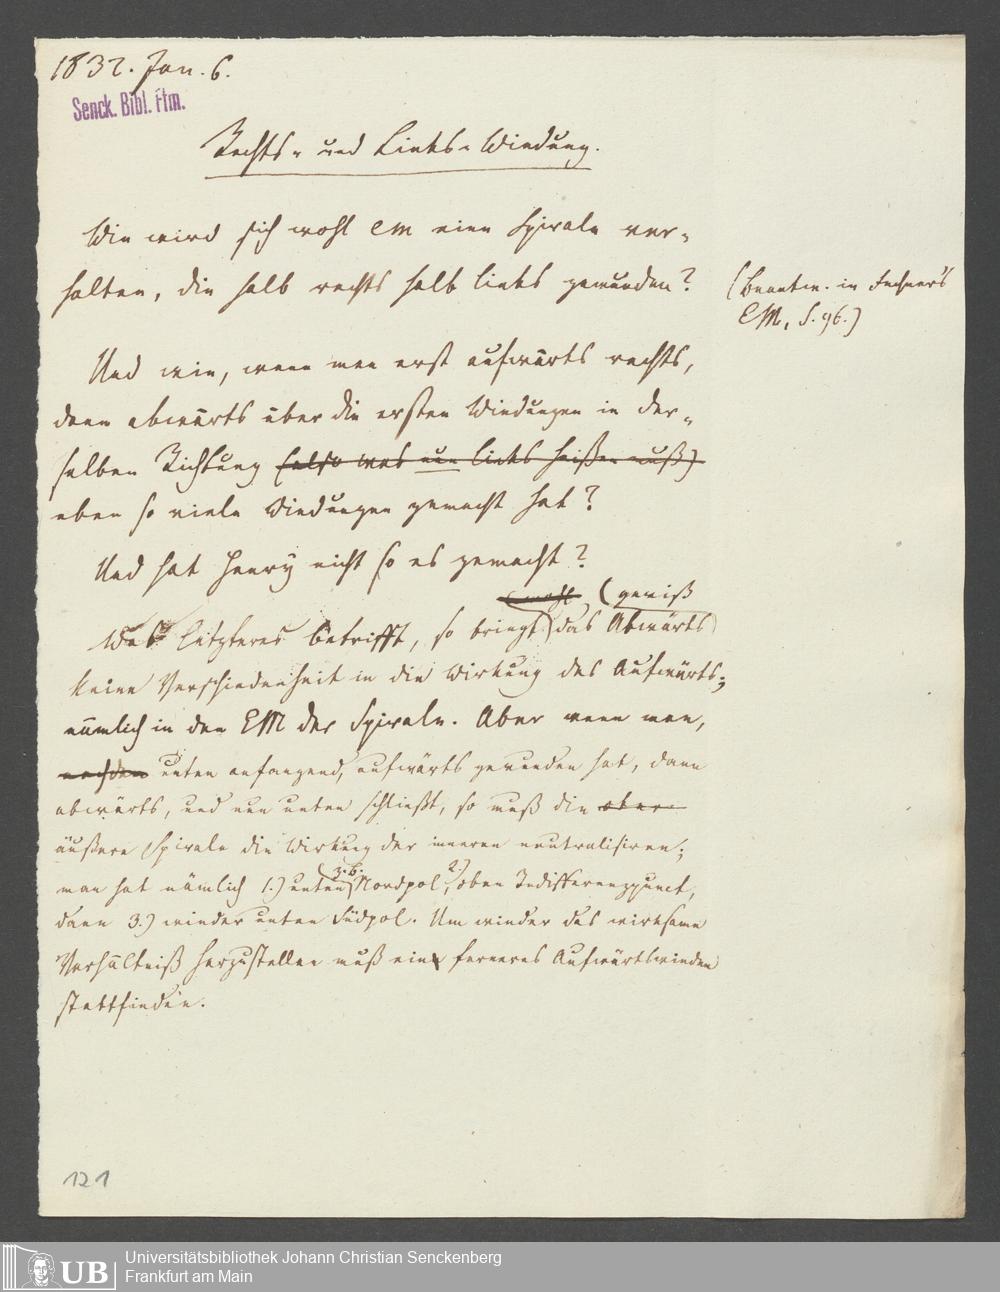 1832. Jan. 6.
Senck. Bibl. Ffm.
Rechts- und Links-Windung.
Wie wird sich wohl em eine Spirale ver-
halten, die halb rechts halb links gewunden?
(Beantw. in Fechner's
EM, S. 96.)
Und wie, wenn man erst aufwärts rechts,
dann abwärts über die ersten Windungen in der-
selben Richtung (also was nun links heißen muß)
eben so viele Windungen gemacht hat?
Und hat Henry nicht so es gemacht?
(wohl (gewiß
Was Letzteres betrifft, so bringt das Abwärts
keine Verschiedenheit in die Wirkung des Aufwärts;
nämlich in den EM der Spirale. Aber wenn man,
nachdem unten anfangend, aufwärts gewunden hat, dann
abwärts, und nun unten schließt, so muß die obere
äußere Spirale die Wirkung der inneren neutralisiren;
man hat nämlich 1.) unten z.B. Nordpol, 2.) oben Indifferenzpunct,
dann 3.) wieder unten Südpol. Um wieder das wirksame
Verhältniß herzustellen muß ein ferneres Aufwärtswinden
stattfinden.
121
UB
Universitätsbibliothek Johann Christian Senckenberg
Frankfurt am Main